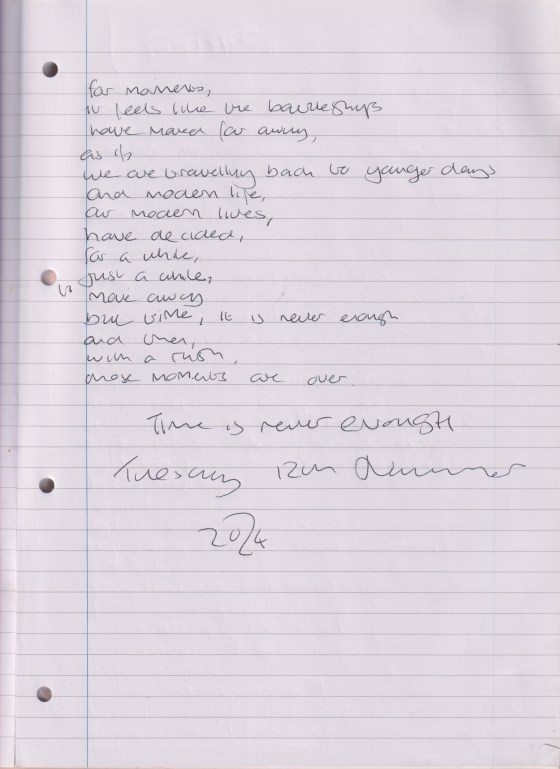 for moments,
it feels like the battleships
have moved far away,
as if
we are travelling back to younger days
and modern life,
our modern lives,
have decided,
for a while,
just a while,
to move away
but time, it is never enough
and then,
with a rush,
those moments are over.
Time is never enough
Tuesday 12th
2024